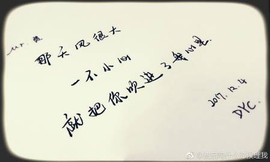 那天风很大
一不小心
就把你吹进了我心里
2017.12.4
DYC.